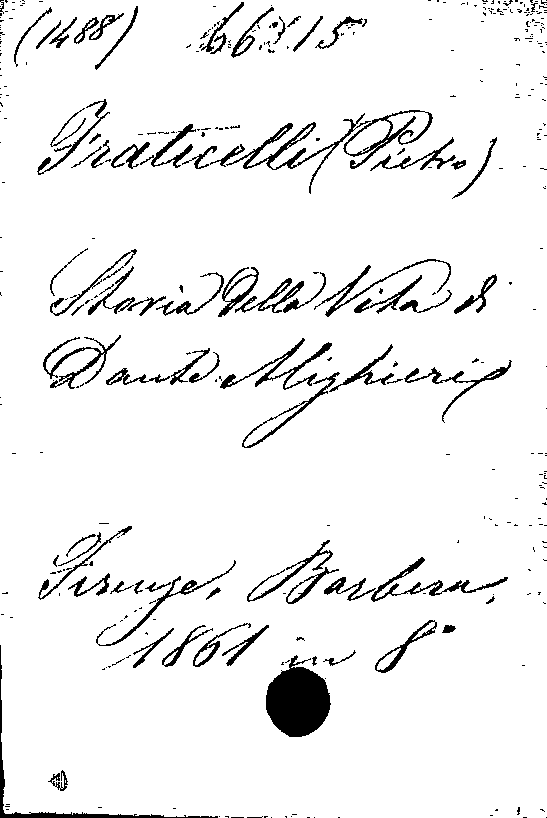 (1488) 66215
Fraticelli (Pietro)
Storia della Vita di
Dante Alighieri
Firenze, Barbera,
1861 in 8°